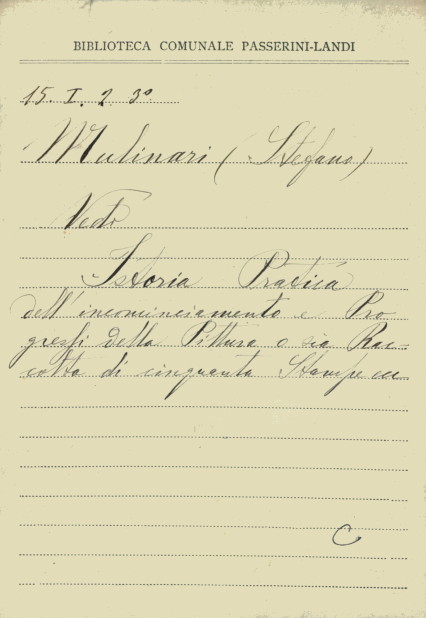 BIBLIOTECA COMUNALE PASSERINI-LANDI
15. I. 2 3º
Mulinari (Stefano)
Vedi
Istoria Pratica
dell'incominciamento e Pro
gressi della Pittura o sia Rac-
colta di cinquanta Stampe
C